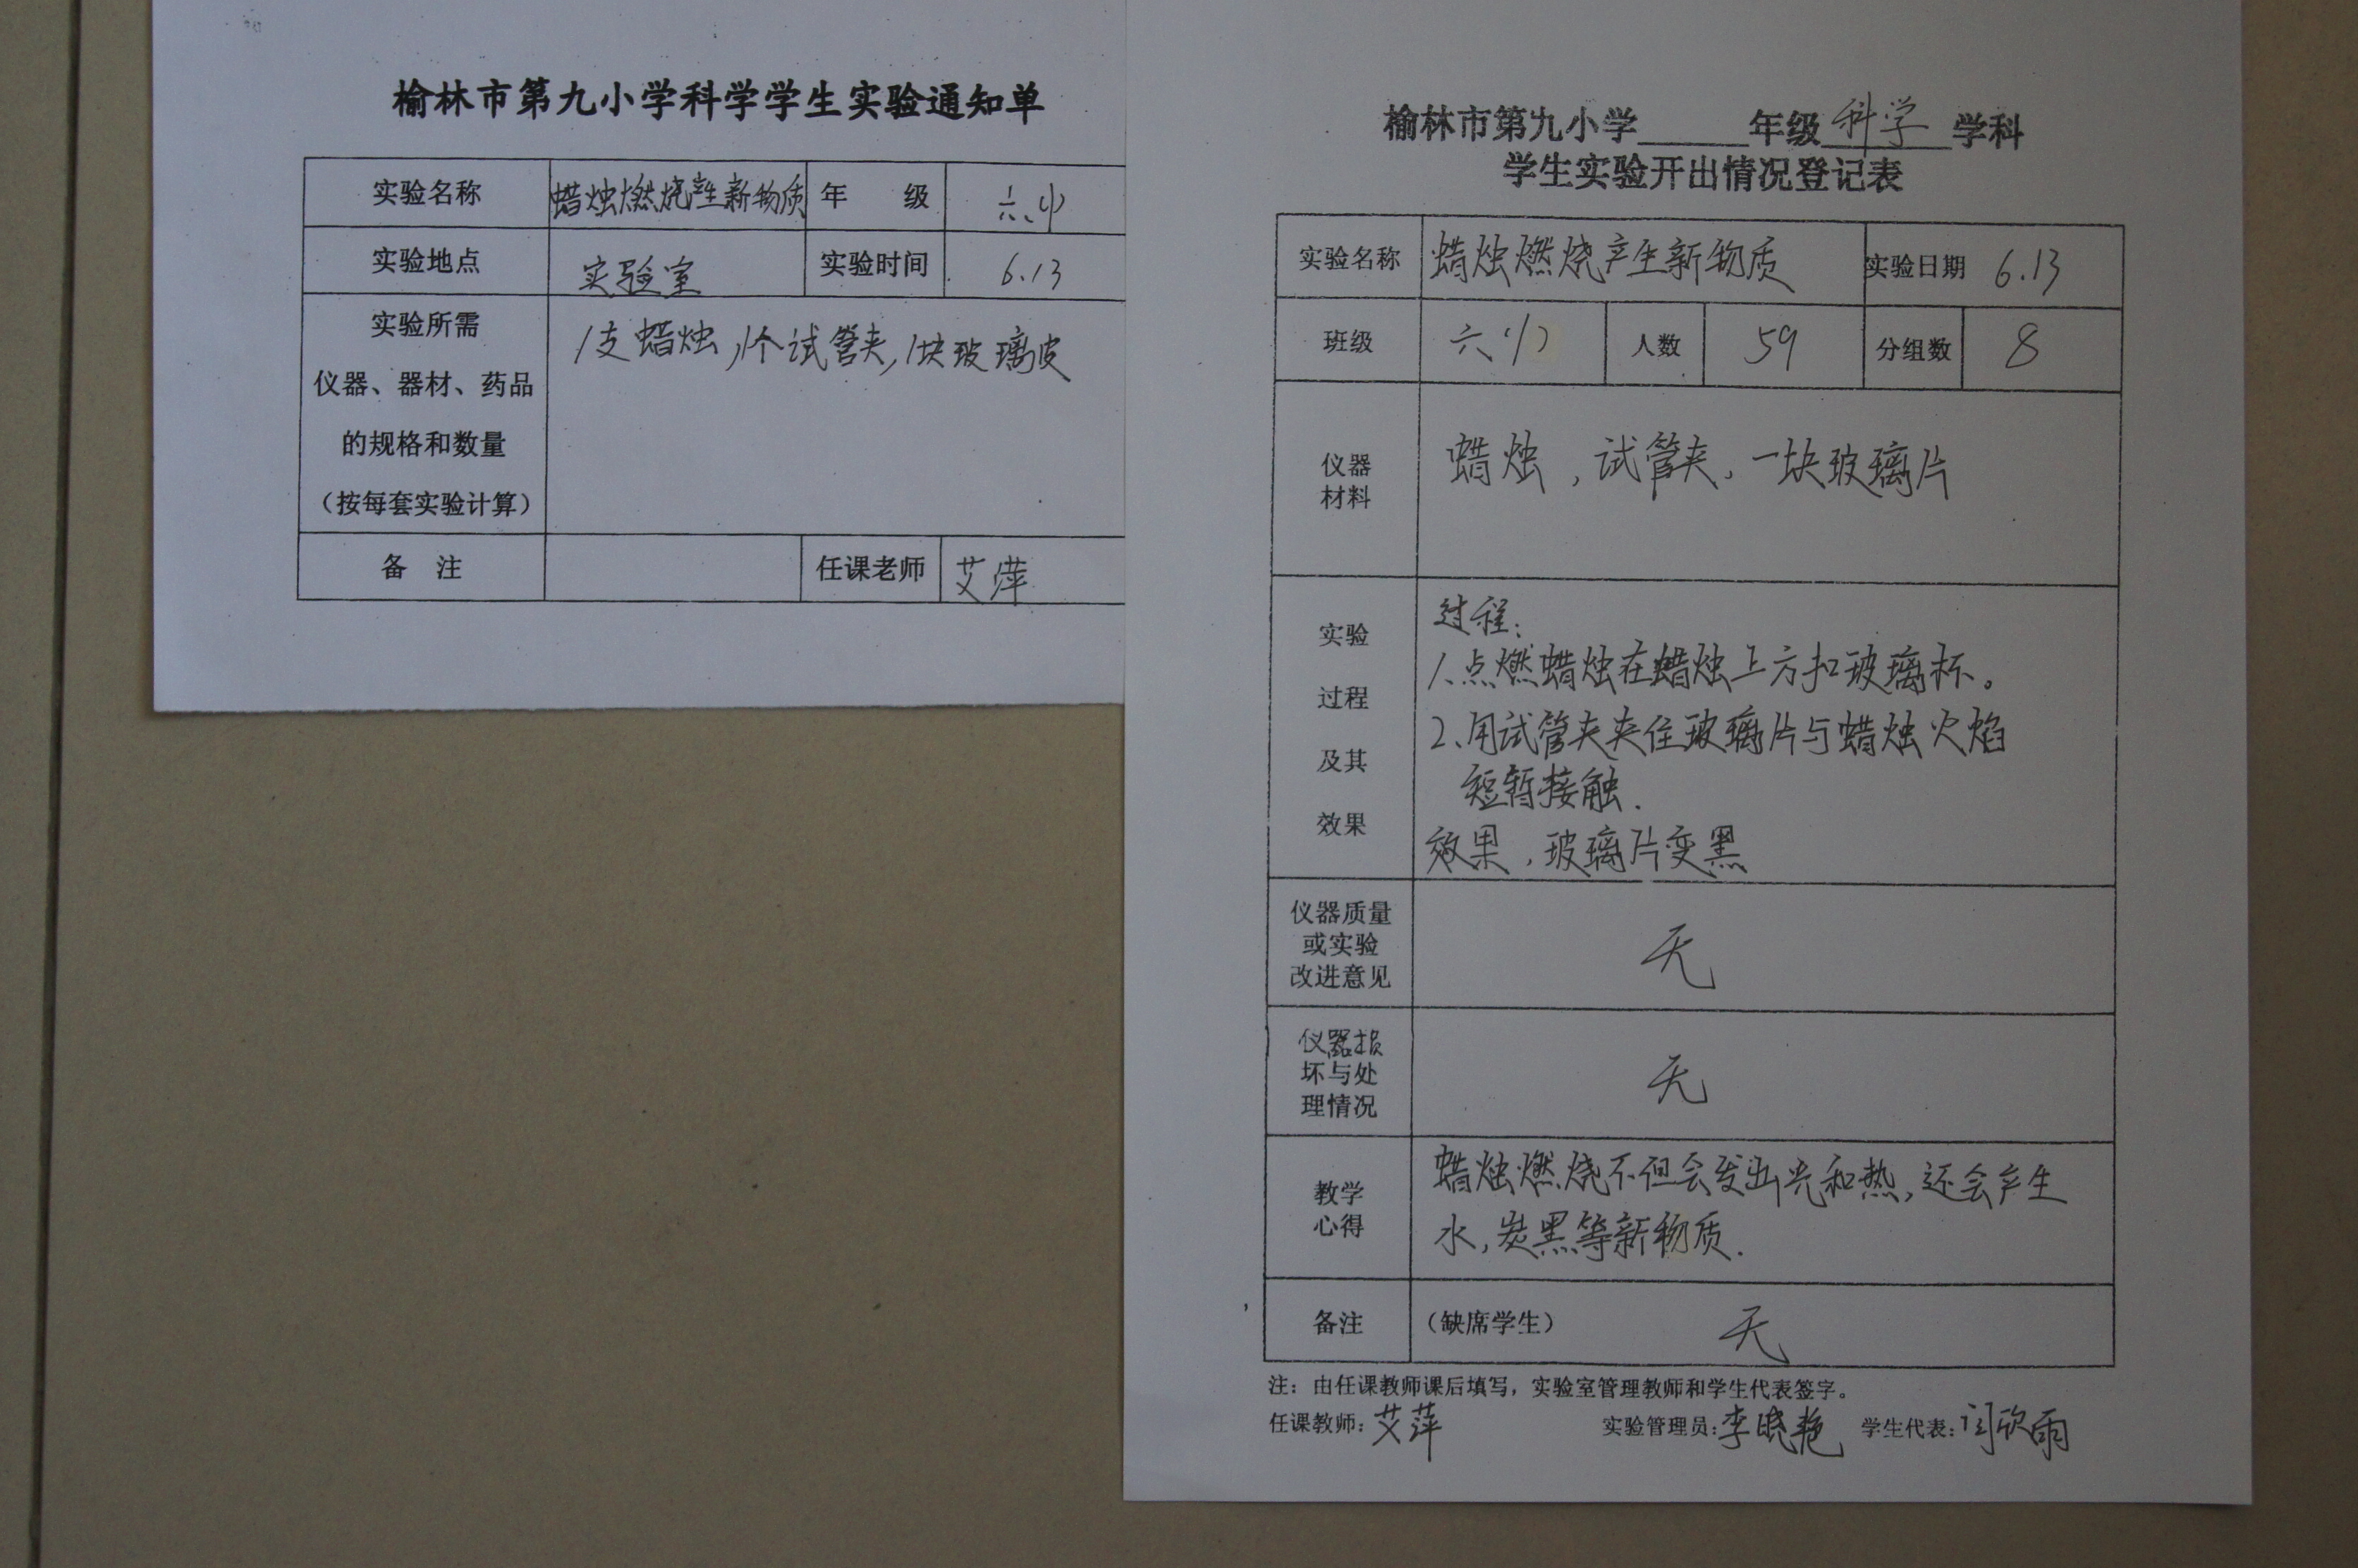 榆林市第九小学科学学生实验通知单
实验名称 蜡烛燃烧产生新物质 年 级
实验地点 实验室 实验时间 6.13
实验所需
仪器、器材、药品
的规格和数量
（按每套实验计算）
1支蜡烛,1个试管夹,1块玻璃皮
备 注 任课老师 艾萍
榆林市第九小学 年级 科学 学科
学生实验开出情况登记表
实验名称 蜡烛燃烧产生新物质 实验日期 6.13
班级 人数 59 分组数 8
仪器
材料
蜡烛,试管夹,一块玻璃片
实验
过程
及其
效果
过程:
1、点燃蜡烛在蜡烛上方扣玻璃杯。
2、用试管夹夹住玻璃片与蜡烛火焰
短暂接触.
效果,玻璃片变黑
仪器质量
或实验
改进意见
无
仪器损
坏与处
理情况
无
教学
心得
蜡烛燃烧不但会发出光和热,还会产生
水,炭黑等新物质.
备注 （缺席学生） 无
注：由任课教师课后填写，实验室管理教师和学生代表签字。
任课教师: 艾萍 实验管理员: 李晓艳 学生代表: 闫欣雨